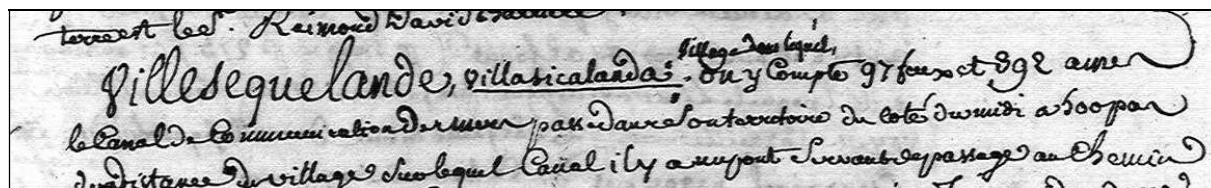 terre est le Sr. Raimond David
village dans lequel
Villesequelande, Villasicalanda: on y Compte 97 feux et 392 ames
le Canal de Communication des mers passe dans son territoire du coté du midi a 500 pas
de distance du village sur lequel Canal il y a un pont servant de passage au Chemin